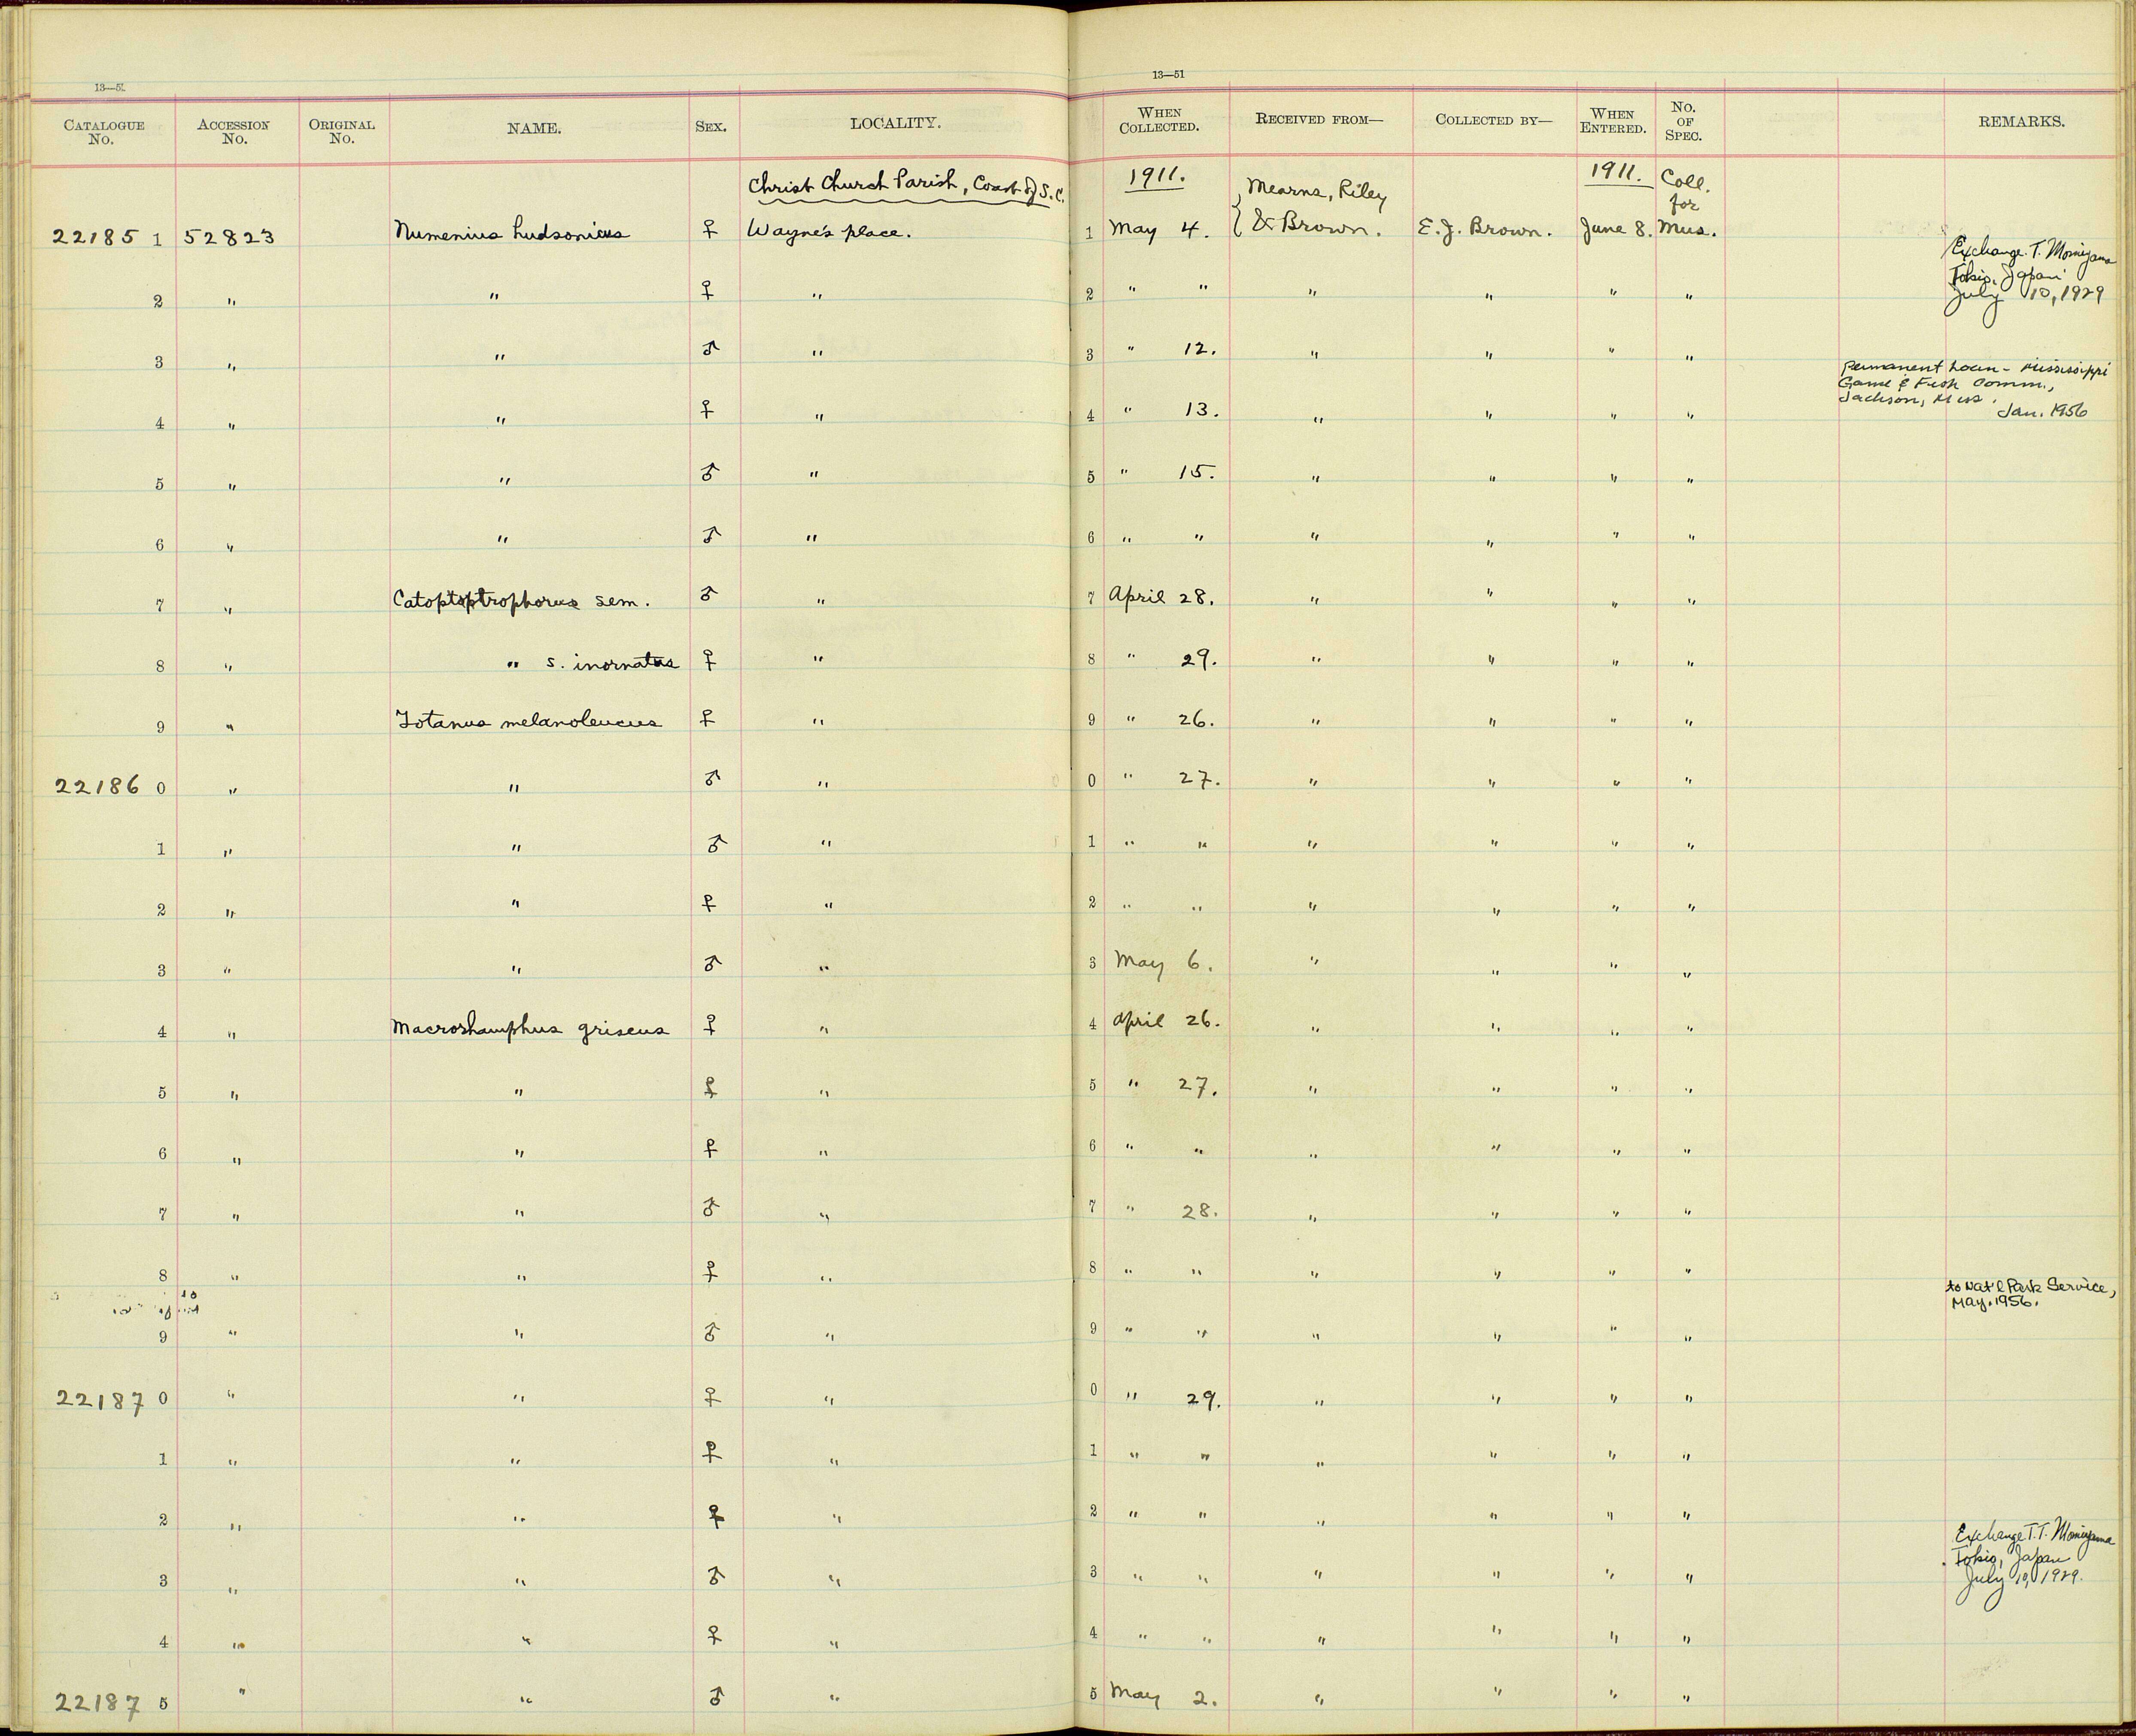 13—51
13—51
CATALOGUE No. ACCESSION No. ORIGINAL No. NAME. SEX. LOCALITY. WHEN COLLECTED. RECEIVED FROM— COLLECTED BY— WHEN ENTERED. No. OF SPEC. REMARKS.
Christ Church Parish, Coast of S.C. 1911. Mearns, Riley 1911. Coll. for
22185 1 52823 Numenius hudsonicus ♀ Wayne's place. 1 May 4. & Brown. E. J. Brown. June 8. Mus.
Exchange. T. Momiyama
Tokio, Japan
July 10, 1929
2 " " ♀ " 2 " " " " " "
3 " " ♂ " 3 " 12. " " " "
Permanent Loan - Mississippi
Game & Fish Comm.,
Jackson, Miss.
Jan. 1956
4 " " ♀ " 4 " 13. " " " "
5 " " ♂ " 5 " 15. " " " "
6 " " ♂ " 6 " " " " " "
7 " Catoptoptrophorus sem. ♂ " 7 April 28. " " " "
8 " " s. inornatus ♀ " 8 " 29. " " " "
9 " Totanus melanoleucus ♀ " 9 " 26. " " " "
22186 0 " " ♂ " 0 " 27. " " " "
1 " " ♂ " 1 " " " " " "
2 " " ♀ " 2 " " " " " "
3 " " ♂ " 3 May 6. " " " "
4 " Macrorhamphus griseus ♀ " 4 April 26. " " " "
5 " " ♀ " 5 " 27. " " " "
6 " " ♀ " 6 " " " " " "
7 " " ♂ " 7 " 28. " " " "
8 " " ♀ " 8 " " " " " "
to Nat'l Park Service,
May. 1956.
9 " " ♂ " 9 " " " " " "
22187 0 " " ♀ " 0 " 29. " " " "
1 " " ♀ " 1 " " " " " "
2 " " ♀ " 2 " " " " " "
Exchange T. T. Momiyama
Tokio, Japan
July 10, 1929.
3 " " ♂ " 3 " " " " " "
4 " " ♀ " 4 " " " " " "
22187 5 " " ♂ " 5 May 2. " " " "